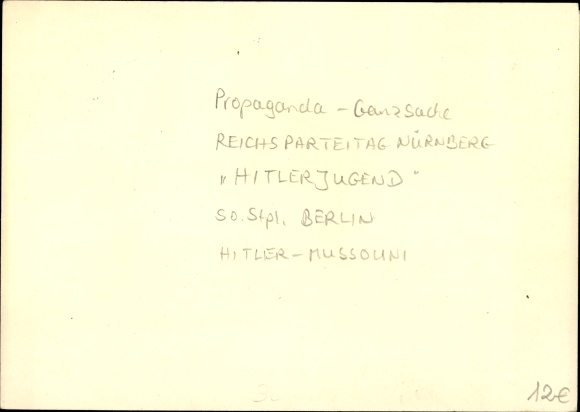 Propaganda - Ganzsache
REICHSPARTEITAG NÜRNBERG
„HITLERJUGEND"
So.Stpl. BERLIN
HITLER-MUSSOLINI
12€